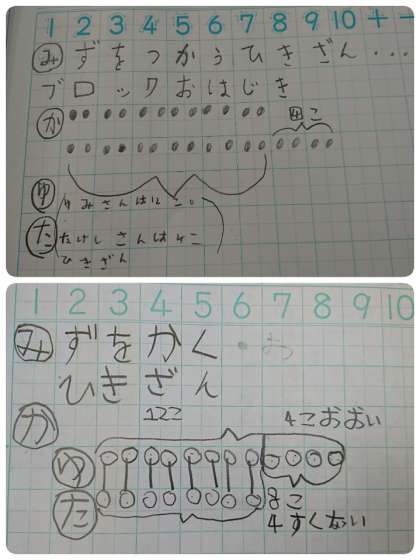 1 2 3 4 5 6 7 8 9 10 + −
み ずをつかうひきざん...
ブロックおはじき
か
4こ
ゆ ゆみさんは12こ。
た たけしさんは
ひきざん
1 2 3 4 5 6 7 8 9 10
み ずをかく
ひきざん
か 12こ 4こおおい
ゆ
た 8こ
4すくない